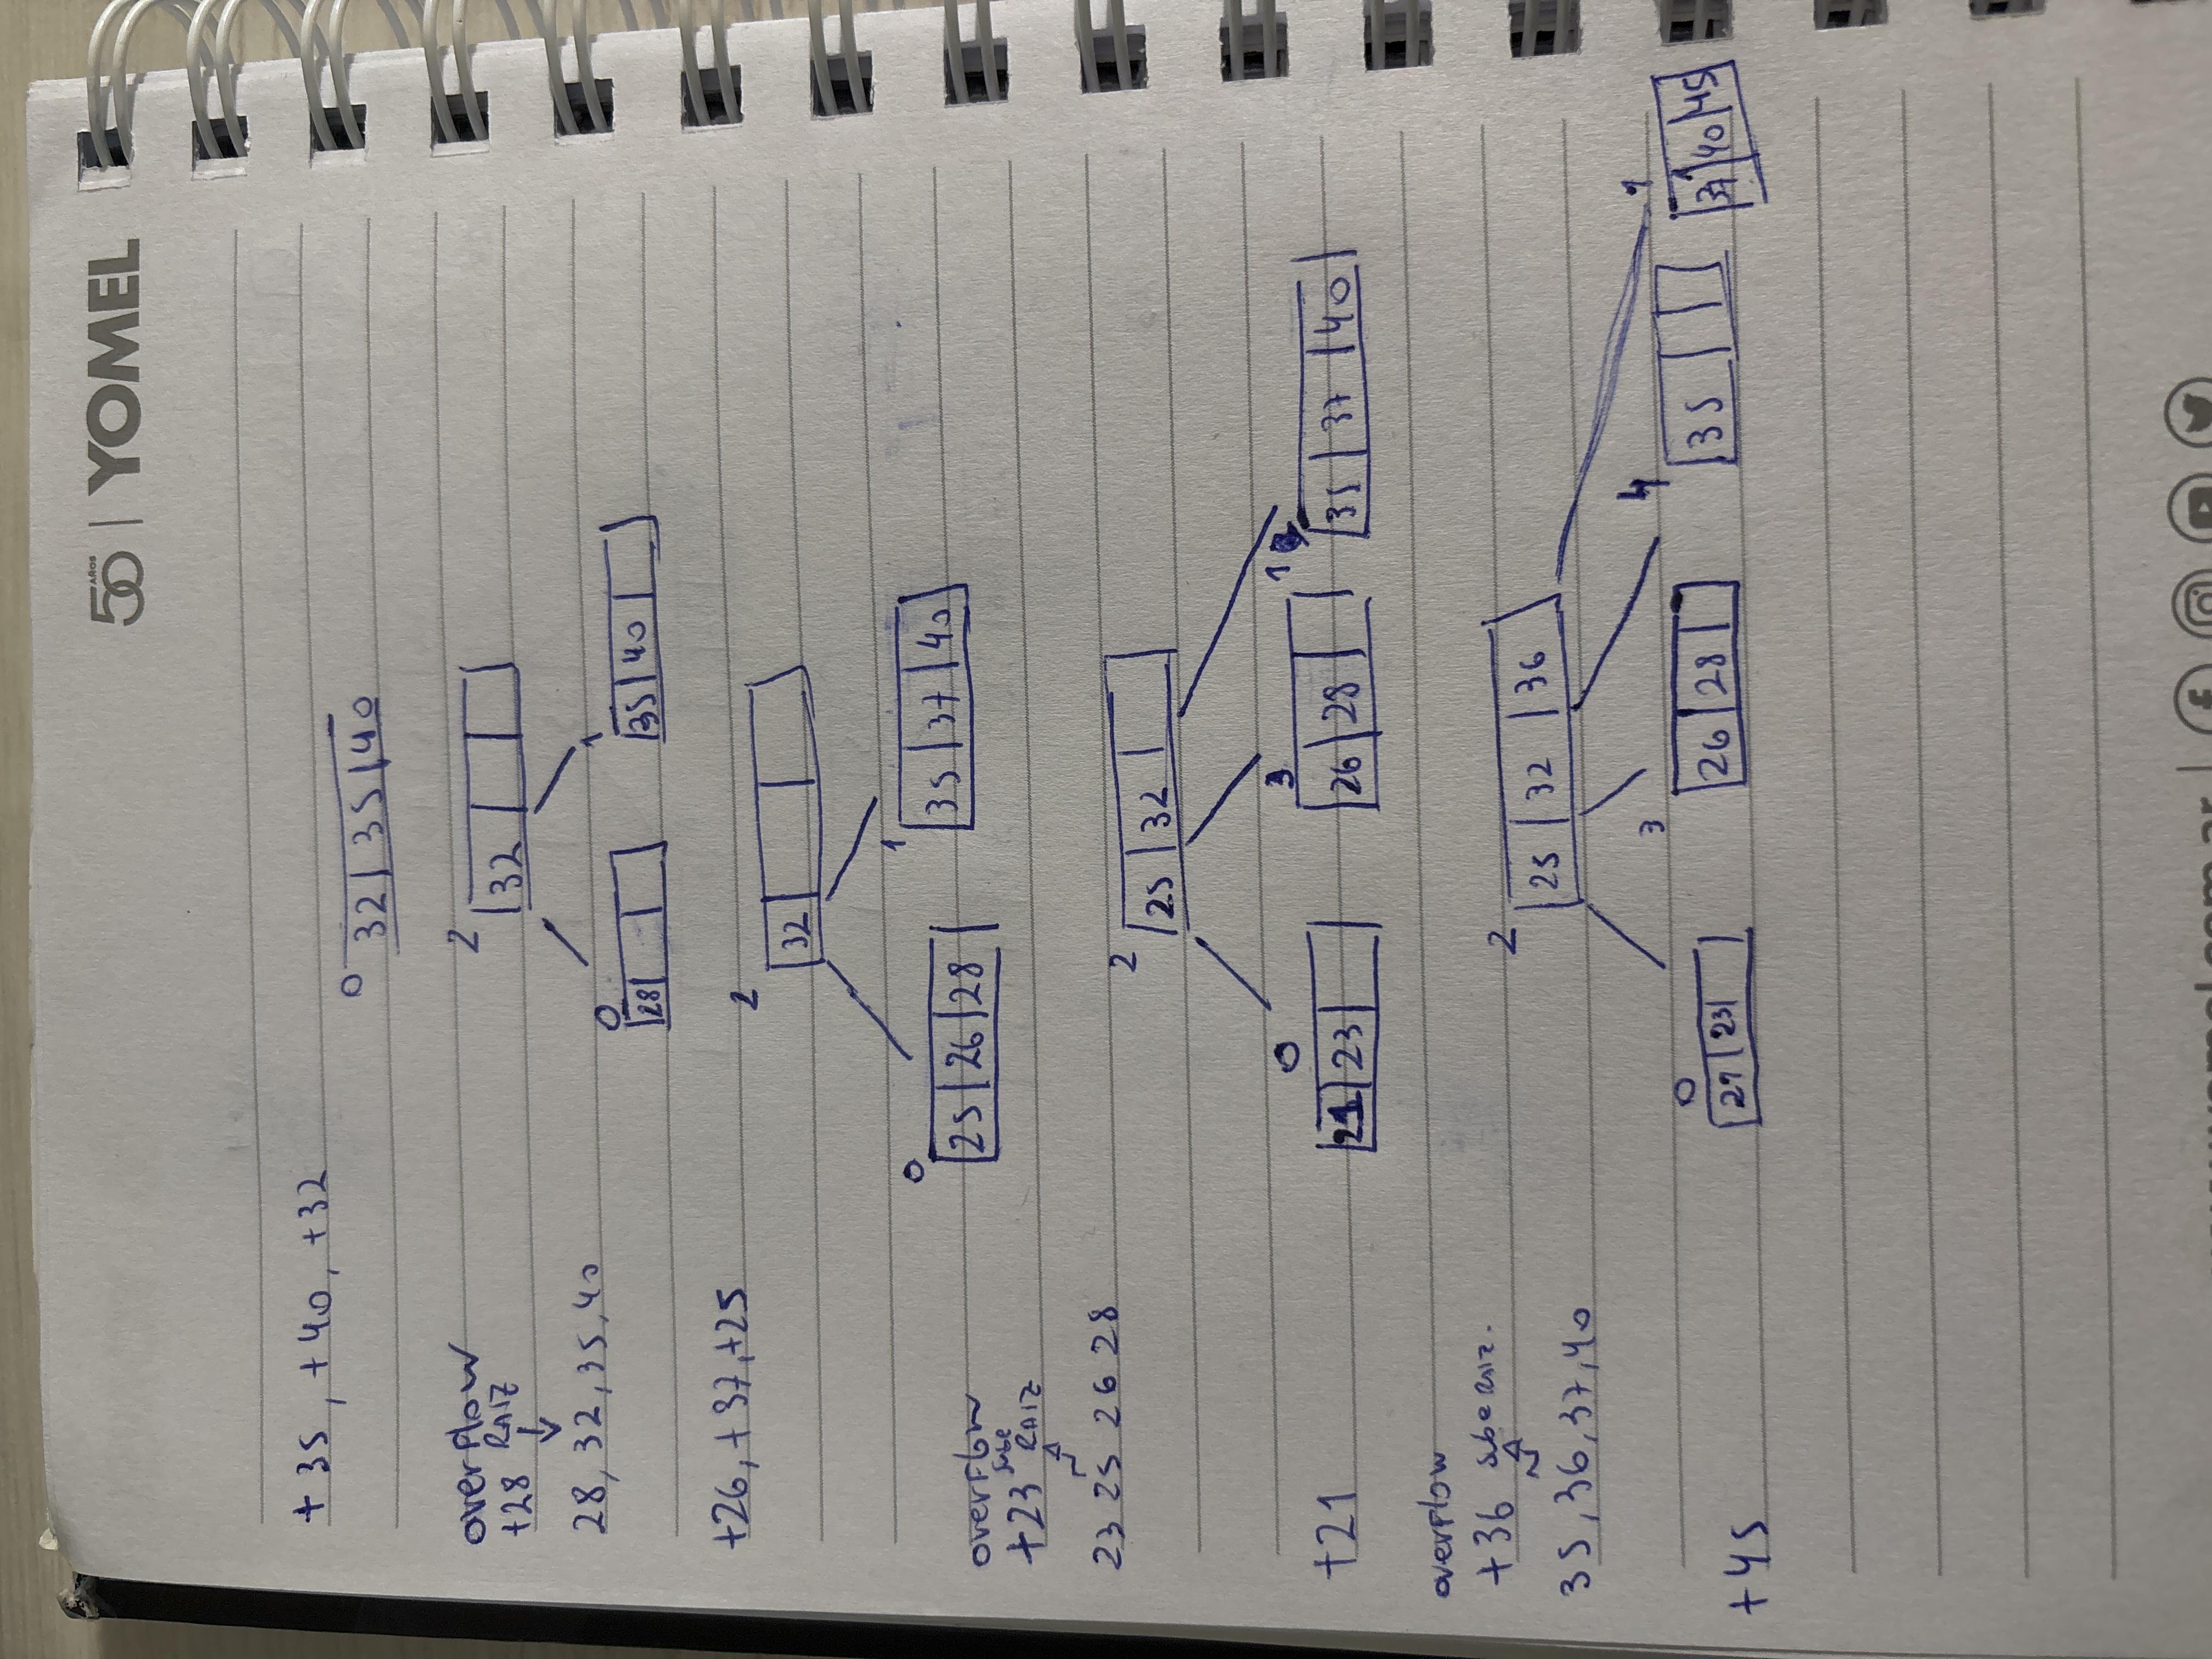 50 AÑOS | YOMEL
+35, +40, +32
0
32 | 35 | 40
overflow
+28 RAIZ
28, 32, 35, 40
2
32
0 1
28
35 40
+26, +37, +25
2
32
0 1
25 26 28
35 37 40
overflow
+23 sube RAIZ
23 25 26 28
2
25 32
0 3 1
+21
21 23
26 28
35 37 40
overflow
+36 sube RAIZ.
35, 36, 37, 40
2
25 32 36
0 3 4 1
21 23
26 28
35
37 40 45
+45
www.yomel.com.ar